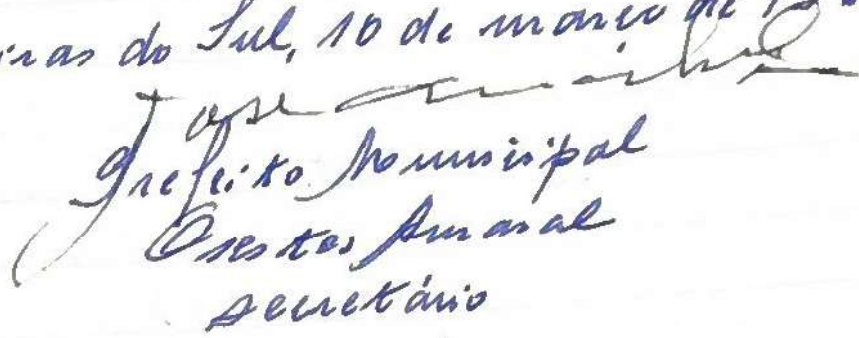 do Sul, 10 de março de
José
Prefeito Municipal
Orestes Amaral
secretário